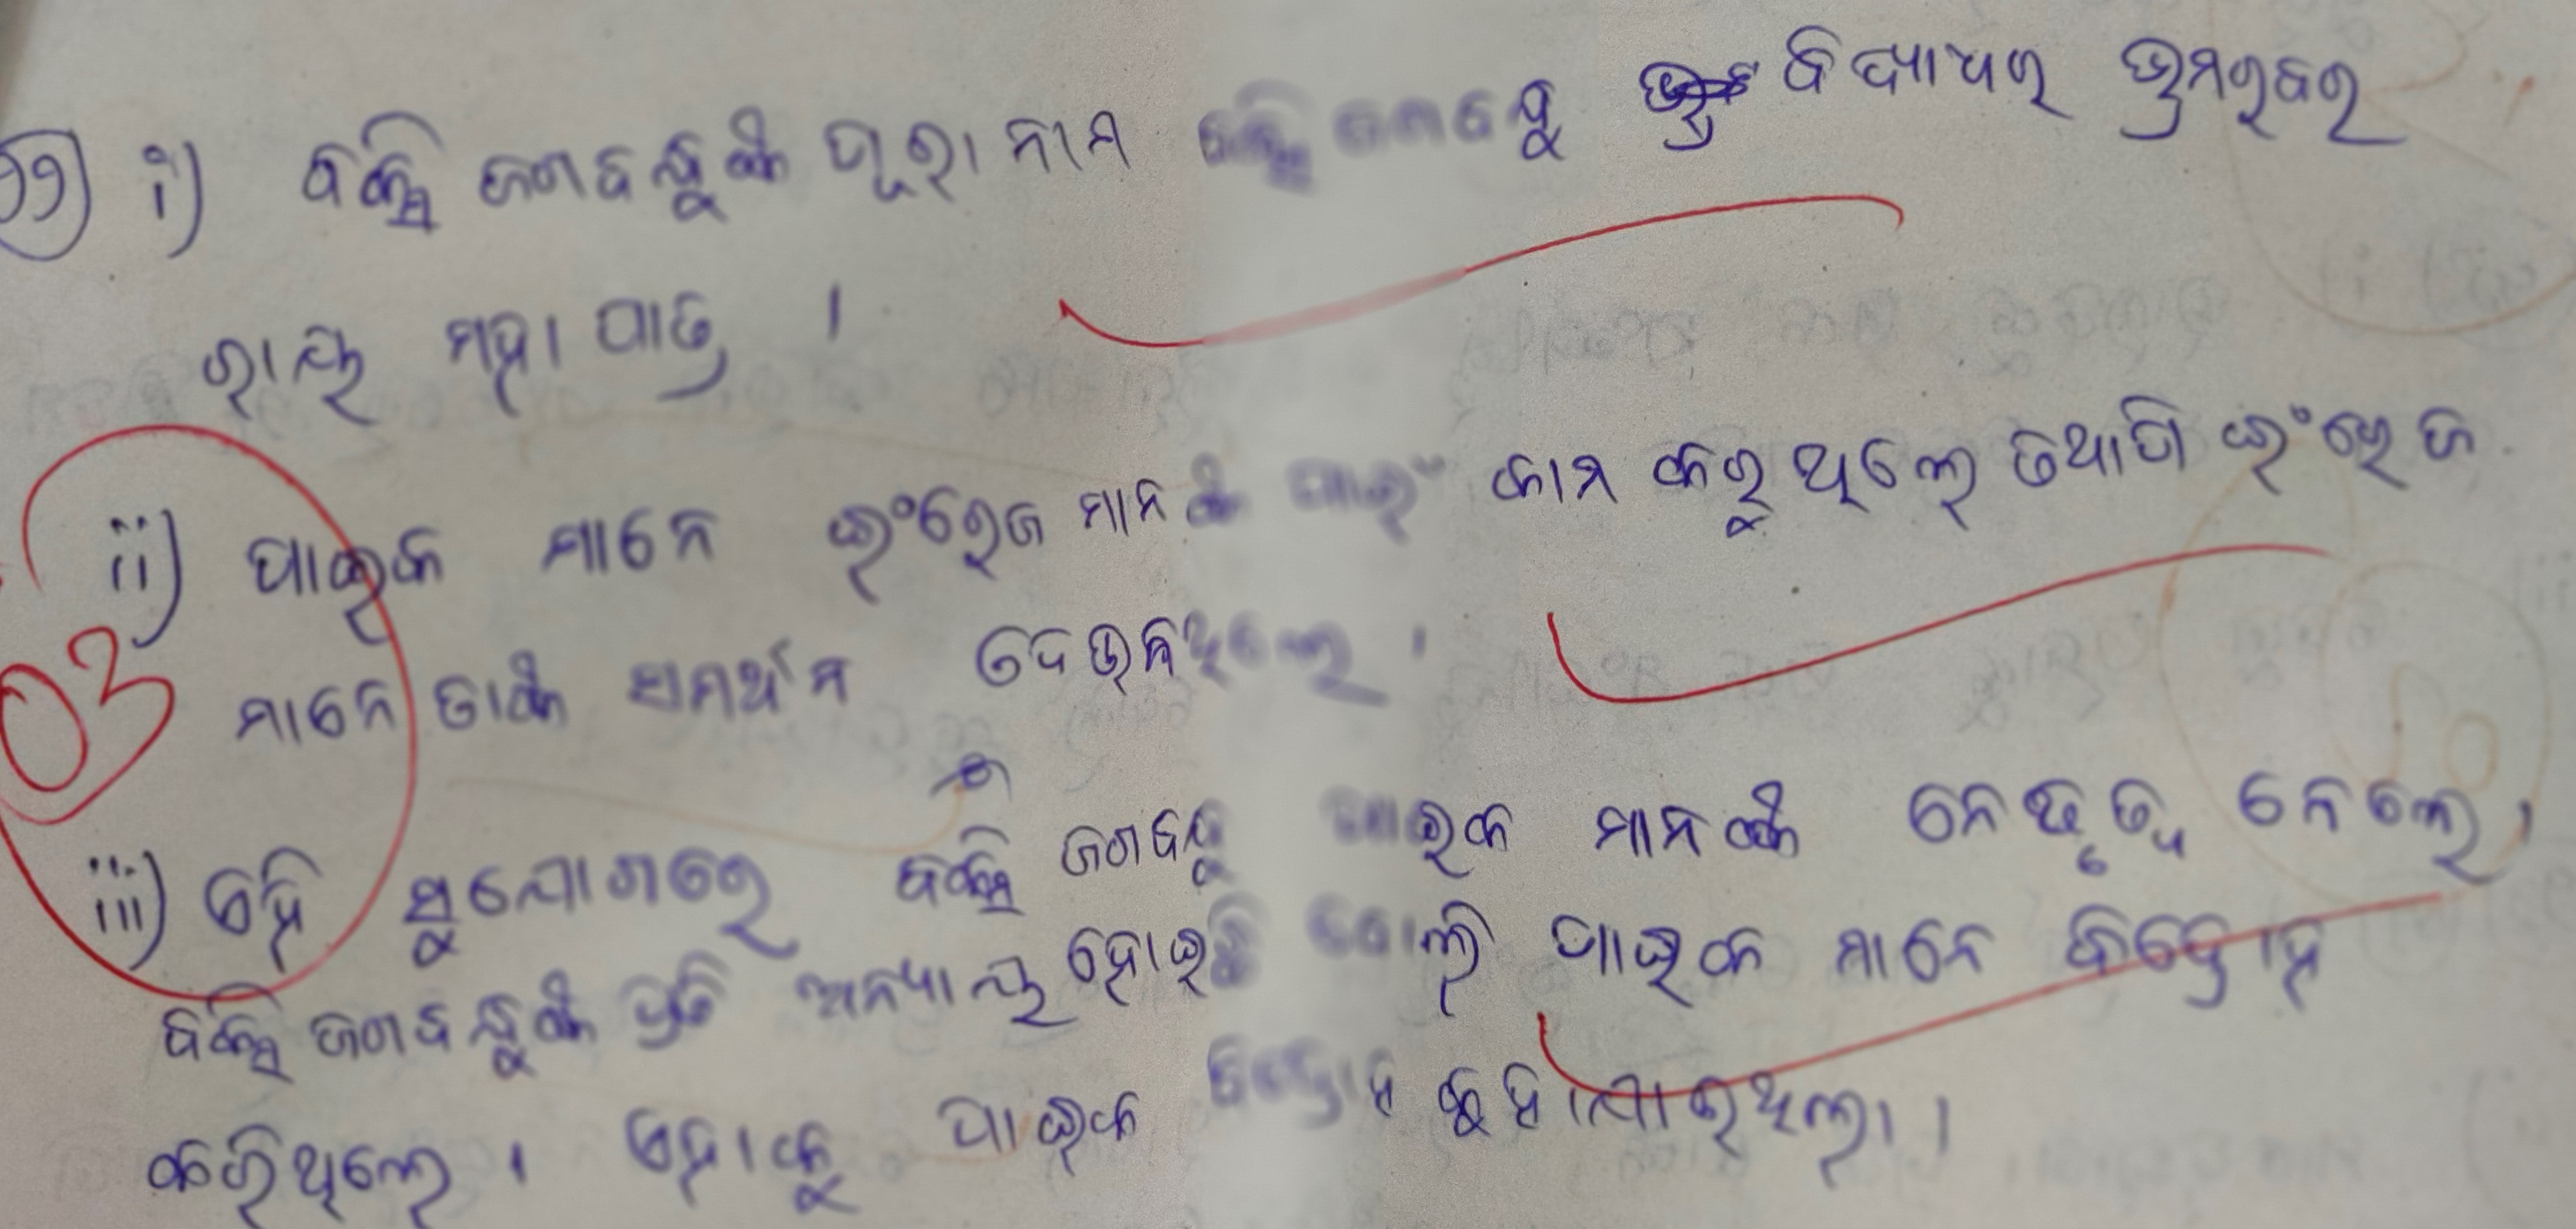 ୨୨) i) ବକ୍ସି ଜଗବନ୍ଧୁଙ୍କ ପୂରା ନାମ ବକ୍ସି ଜଗବନ୍ଧୁ ବିଦ୍ୟାଧର ଭ୍ରମରବର
ରାୟ ମହାପାତ୍ର ।
ii) ପାଇକ ମାନେ ଇଂରେଜ ମାନଙ୍କ ପାଇଁ କାମ କରୁଥିଲେ ତଥାପି ଇଂରେଜ
ମାନେ ତାଙ୍କ ସମର୍ଥନ ଦେଉନଥିଲେ ।
03
iii) ଏହି ସୁଯୋଗରେ ବକ୍ସି ଜଗବନ୍ଧୁ ପାଇକ ମାନଙ୍କ ନେତୃତ୍ୱ ନେଲେ ।
ବକ୍ସି ଜଗବନ୍ଧୁଙ୍କ ପ୍ରତି ଅନ୍ୟାୟ ହୋଇଛି ବୋଲି ପାଇକ ମାନେ ବିଦ୍ରୋହ
କରିଥିଲେ । ଏହାକୁ ପାଇକ ବିଦ୍ରୋହ କୁହାଯାଇଥିଲା ।